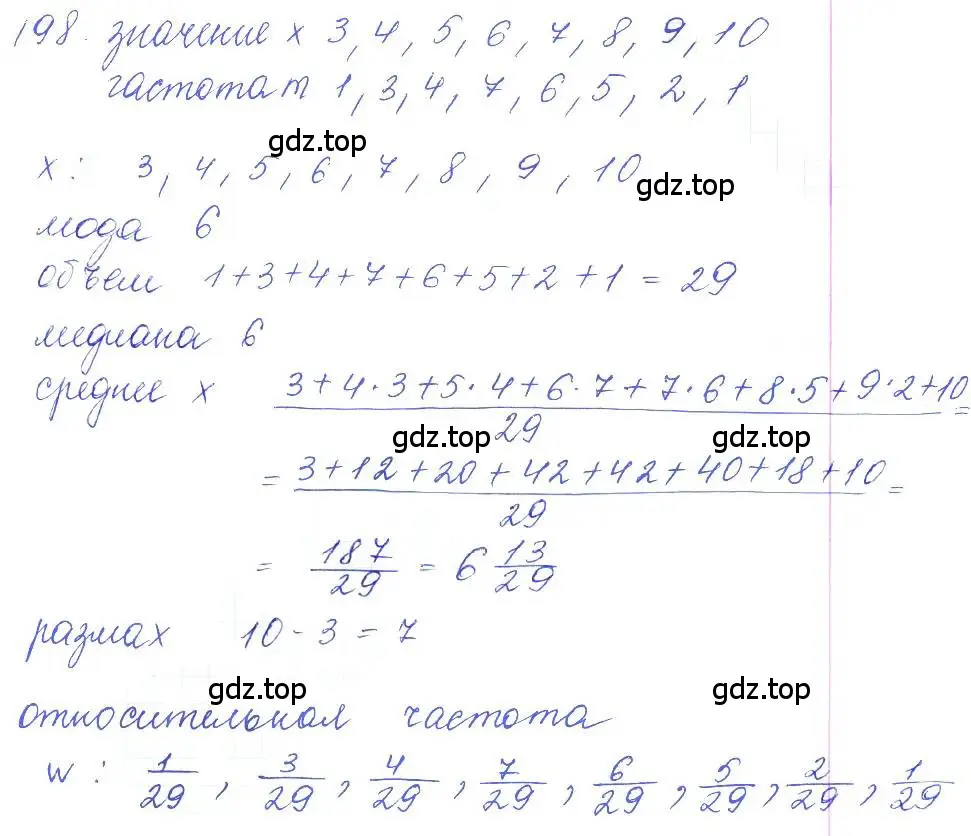 198. значение x 3, 4, 5, 6, 7, 8, 9, 10
частота m 1, 3, 4, 7, 6, 5, 2, 1
gdz.top
x: 3, 4, 5, 6, 7, 8, 9, 10
gdz.top
мода 6
объем 1+3+4+7+6+5+2+1 = 29
медиана 6
среднее x 3+4·3+5·4+6·7+7·6+8·5+9·2+10 =
29
gdz.top gdz.top
= 3+12+20+42+42+40+18+10 =
29
= 187/29 = 6 13/29
размах 10-3=7
gdz.top gdz.top
относительная частота
w: 1/29, 3/29, 4/29, 7/29, 6/29, 5/29, 2/29, 1/29